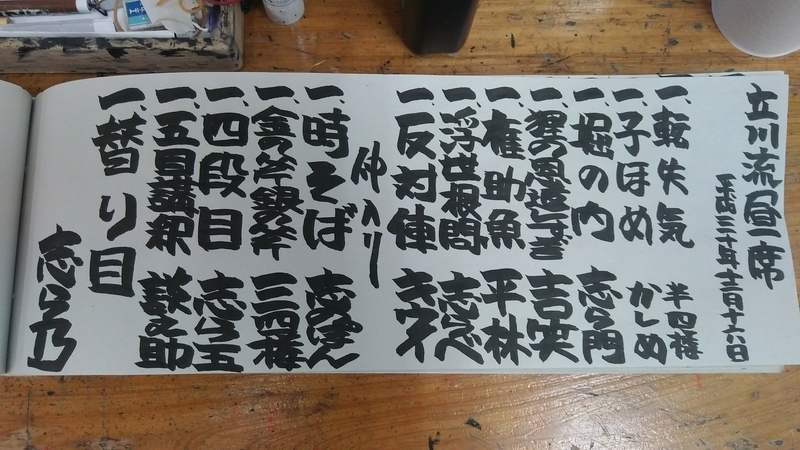 立川流昼席
平成三十年十二月十六日
一、転失気 半四楼
一、子ほめ かしめ
一、堀の内 志ら門
一、狸の恩返しすぎ 吉笑
一、権助魚 平林
一、浮世根問 志ら べ
一、反対俥 キウイ
仲入り
一、時そば 志のぽん
一、金の斧銀の斧 三四楼
一、四段目 志ら玉
一、五貫裁き 談之助
一、替り目 志ら乃